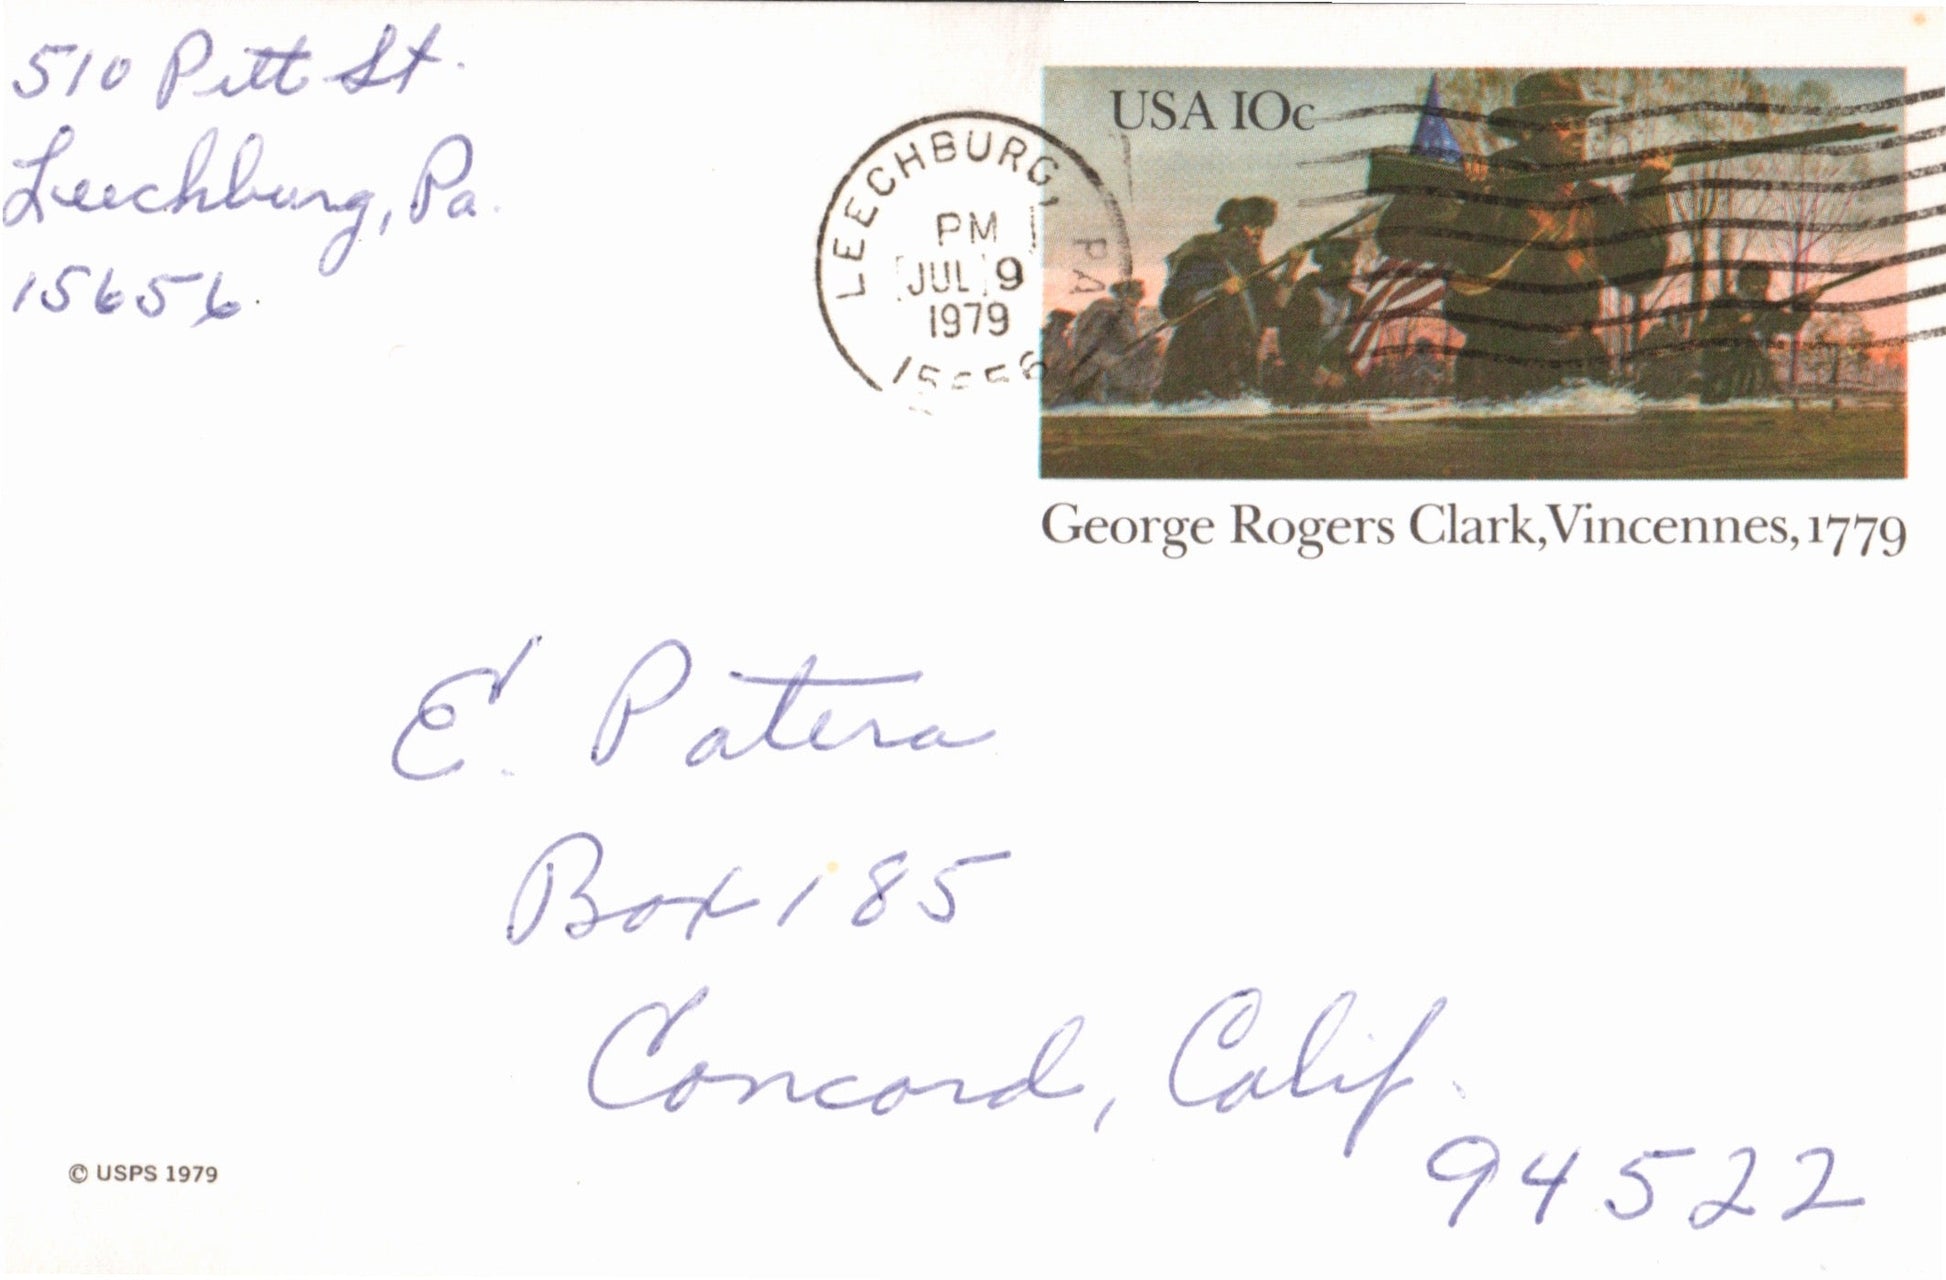 510 Pitt St.
Leechburg, Pa.
15656.
LEECHBURG, PA
PM
JUL 9
1979
15656
USA 10c
George Rogers Clark, Vincennes, 1779
E. Patera
Box 185
Concord, Calif.
94522
© USPS 1979